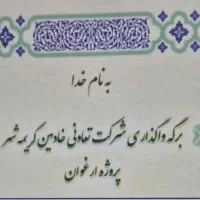 به نام خدا
برگه واگذاری شرکت تعاونی خادمین کریمه شهر
پروژه ارغوان